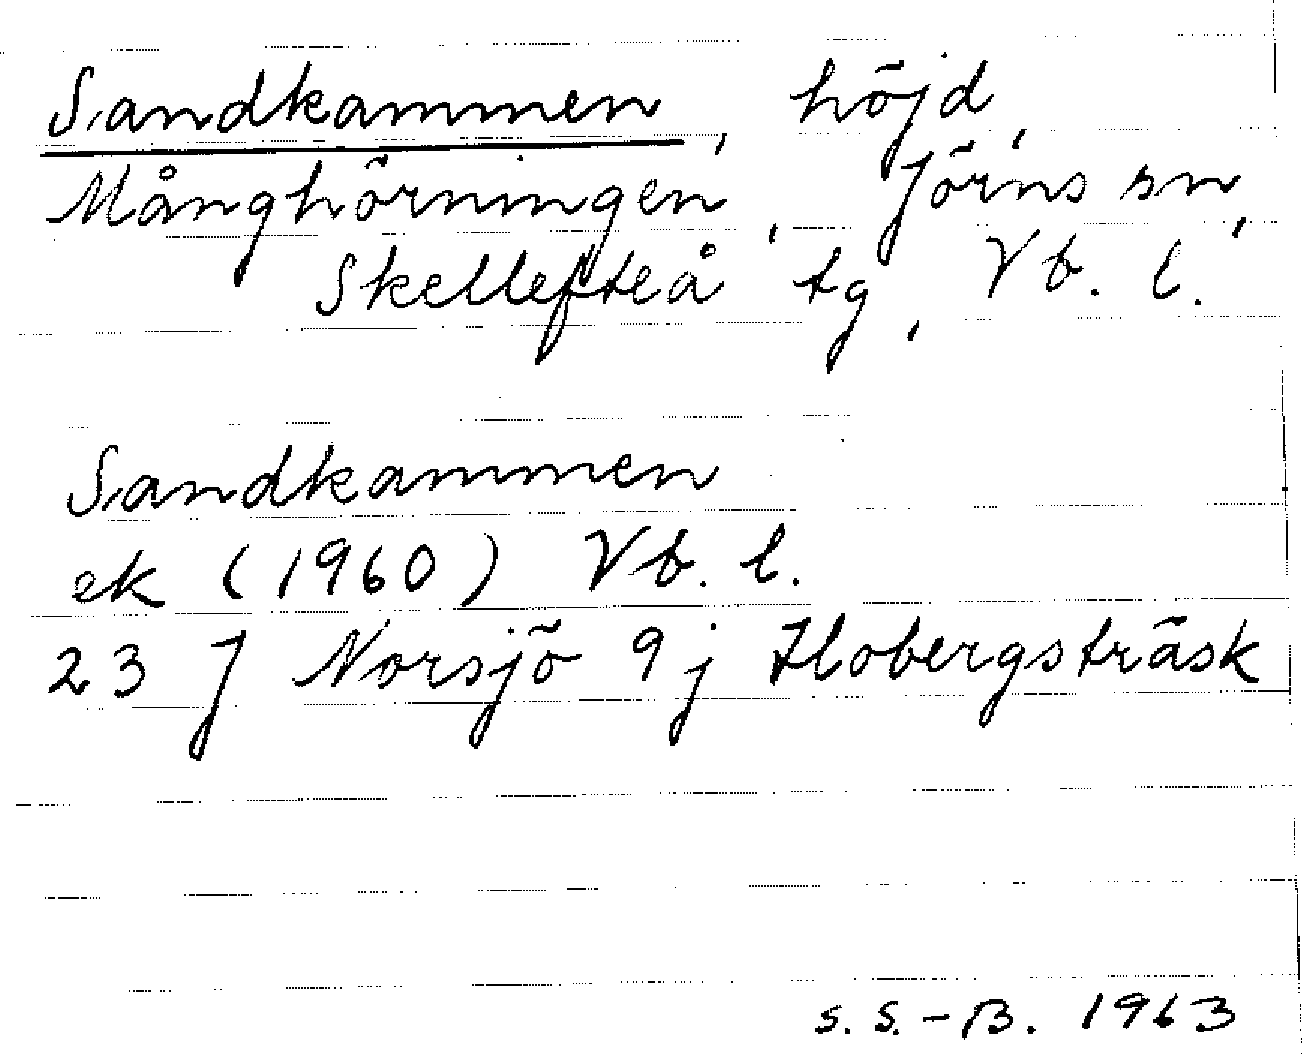 Sandkammen, höjd,
Månghörningen, Jörns sn,
Skellefteå tg, Vb. l.
Sandkammen
ek (1960) Vb. l.
23 J Norsjö 9 j Flobergsträsk
S. S.-B. 1963